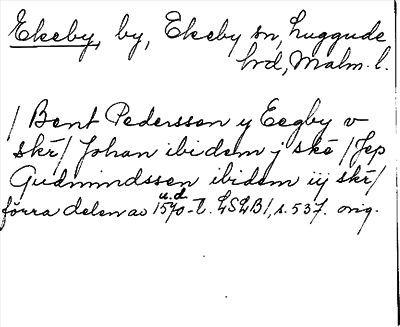 Ekeby, by, Ekeby sn, Luggude
hrd, Malm. l.
/ Bent Pedersson y Eegby v
skr/ Johan ibidem j skr /Jep
Gudmindssen ibidem iij skr/
u.d.
förra delen av 1540-t. LSLB1, s. 537. orig.